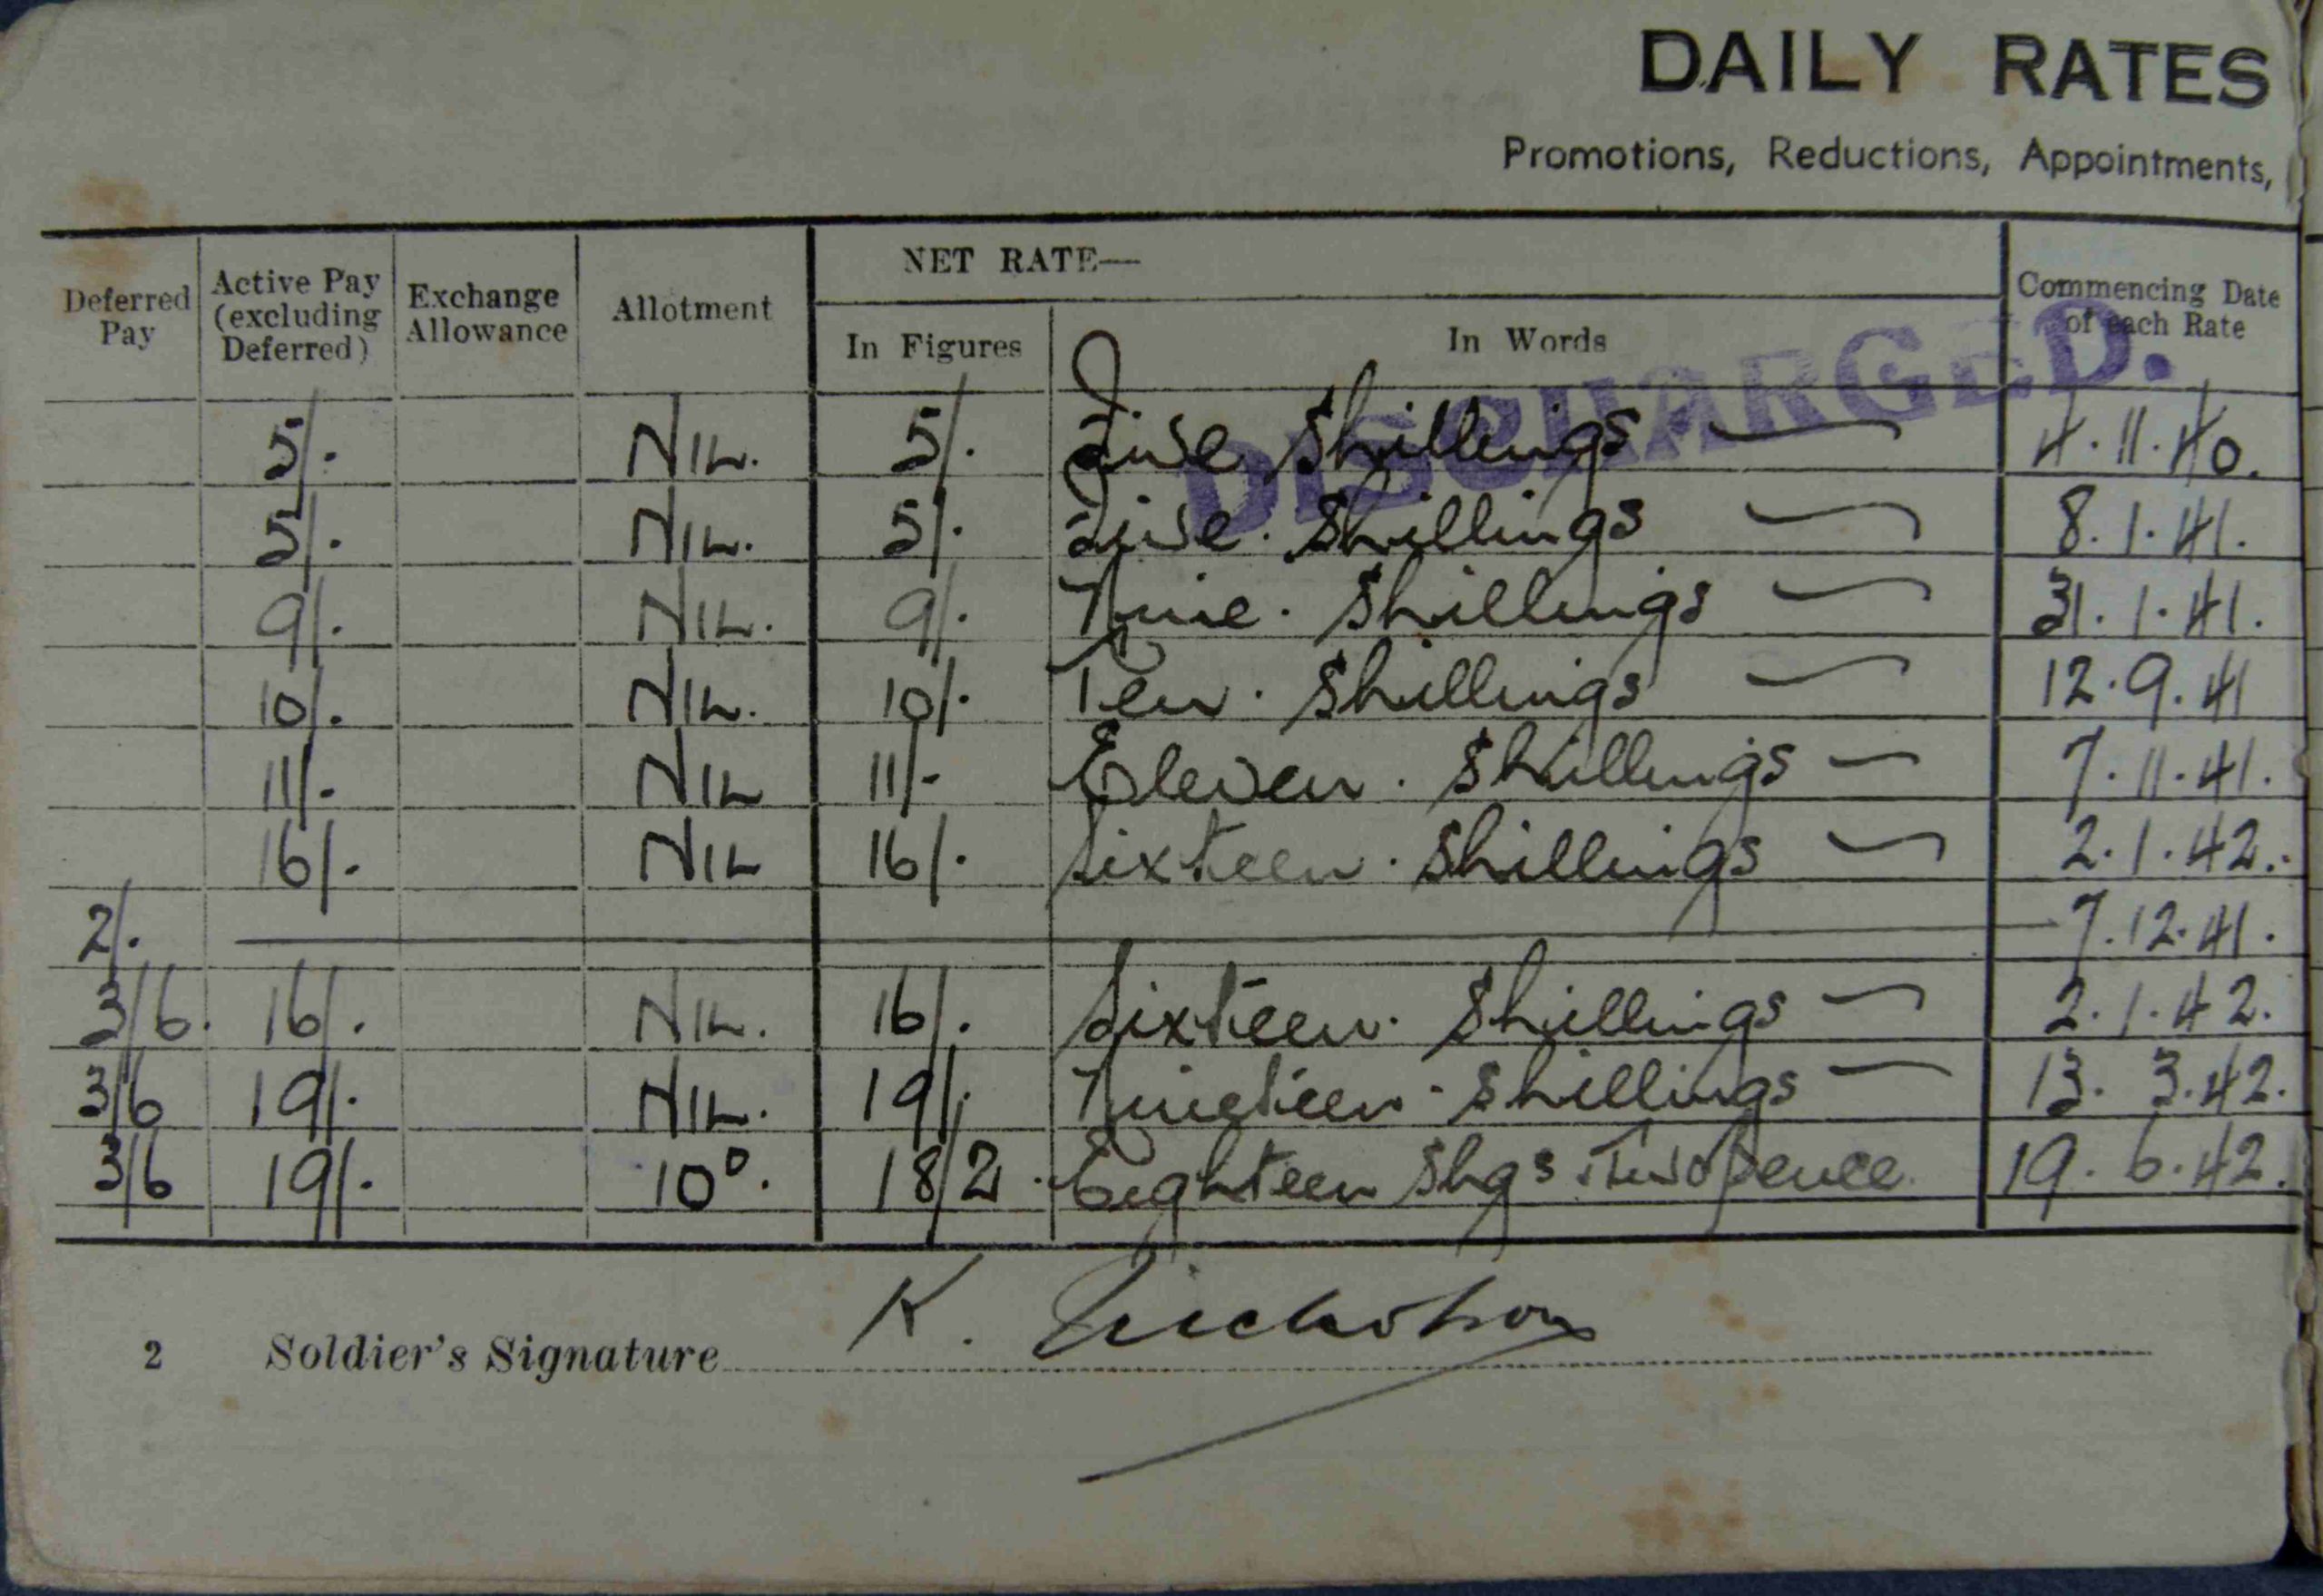 DAILY RATES
Promotions, Reductions, Appointments,
Deferred Pay Active Pay (excluding Deferred) Exchange Allowance Allotment NET RATE— In Figures In Words Commencing Date of each Rate
DISCHARGED.
5/. NIL. 5/. Five Shillings 4.11.40.
5/. NIL. 5/. Five. Shillings 8.1.41.
9/. NIL. 9/. Nine. Shillings 31.1.41.
10/. NIL. 10/. Ten. Shillings 12.9.41
11/- NIL 11/- Eleven. Shillings 7.11.41.
16/. NIL 16/. Sixteen. Shillings 2.1.42.
2/. 7.12.41.
3/6. 16/. NIL. 16/. Sixteen. Shillings 2.1.42.
3/6 19/. NIL. 19/. Nineteen. Shillings 13.3.42.
3/6 19/. 10D. 18/2. Eighteen Shgs Twopence. 19.6.42.
2 Soldier's Signature K. Nicholson